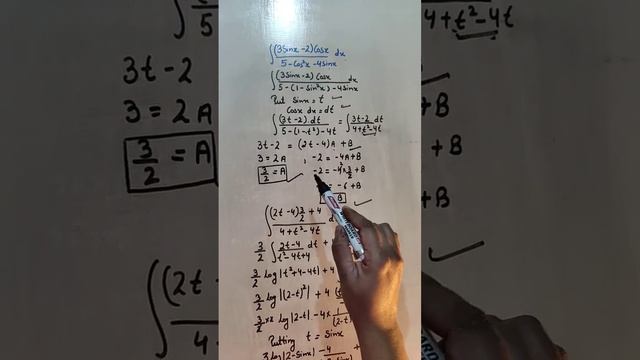 ∫ (3Sinx - 2) Cosx dx / 5 - Cos²x - 4Sinx
∫ (3Sinx - 2) Cosx dx / 5 - (1 - Sin²x) - 4Sinx
Put Sinx = t
Cosx dx = dt
∫ (3t - 2) dt / 5 - (1 - t²) - 4t = ∫ 3t - 2 dt / 4 + t² - 4t
3t - 2 = (2t - 4) A + B
3 = 2A ; -2 = -4A + B
3/2 = A -2 = -4 × 3/2 + B
-6 + B
B
∫ (2t - 4) 3/2 + 4 / 4 + t² - 4t
3/2 ∫ 2t - 4 dt / t² - 4t + 4
3/2 log |t² + 4 - 4t| + 4
3/2 log |(2 - t)²| + 4
3/2 × 2 log |2 - t| - 4 × 1 / (2 - t)
Putting t = Sinx
3 log |2 - Sinx| - 4
3t - 2
3 = 2A
3/2 = A
∫ (2t
4
4 + t² - 4t
+ B
+ B
+ B